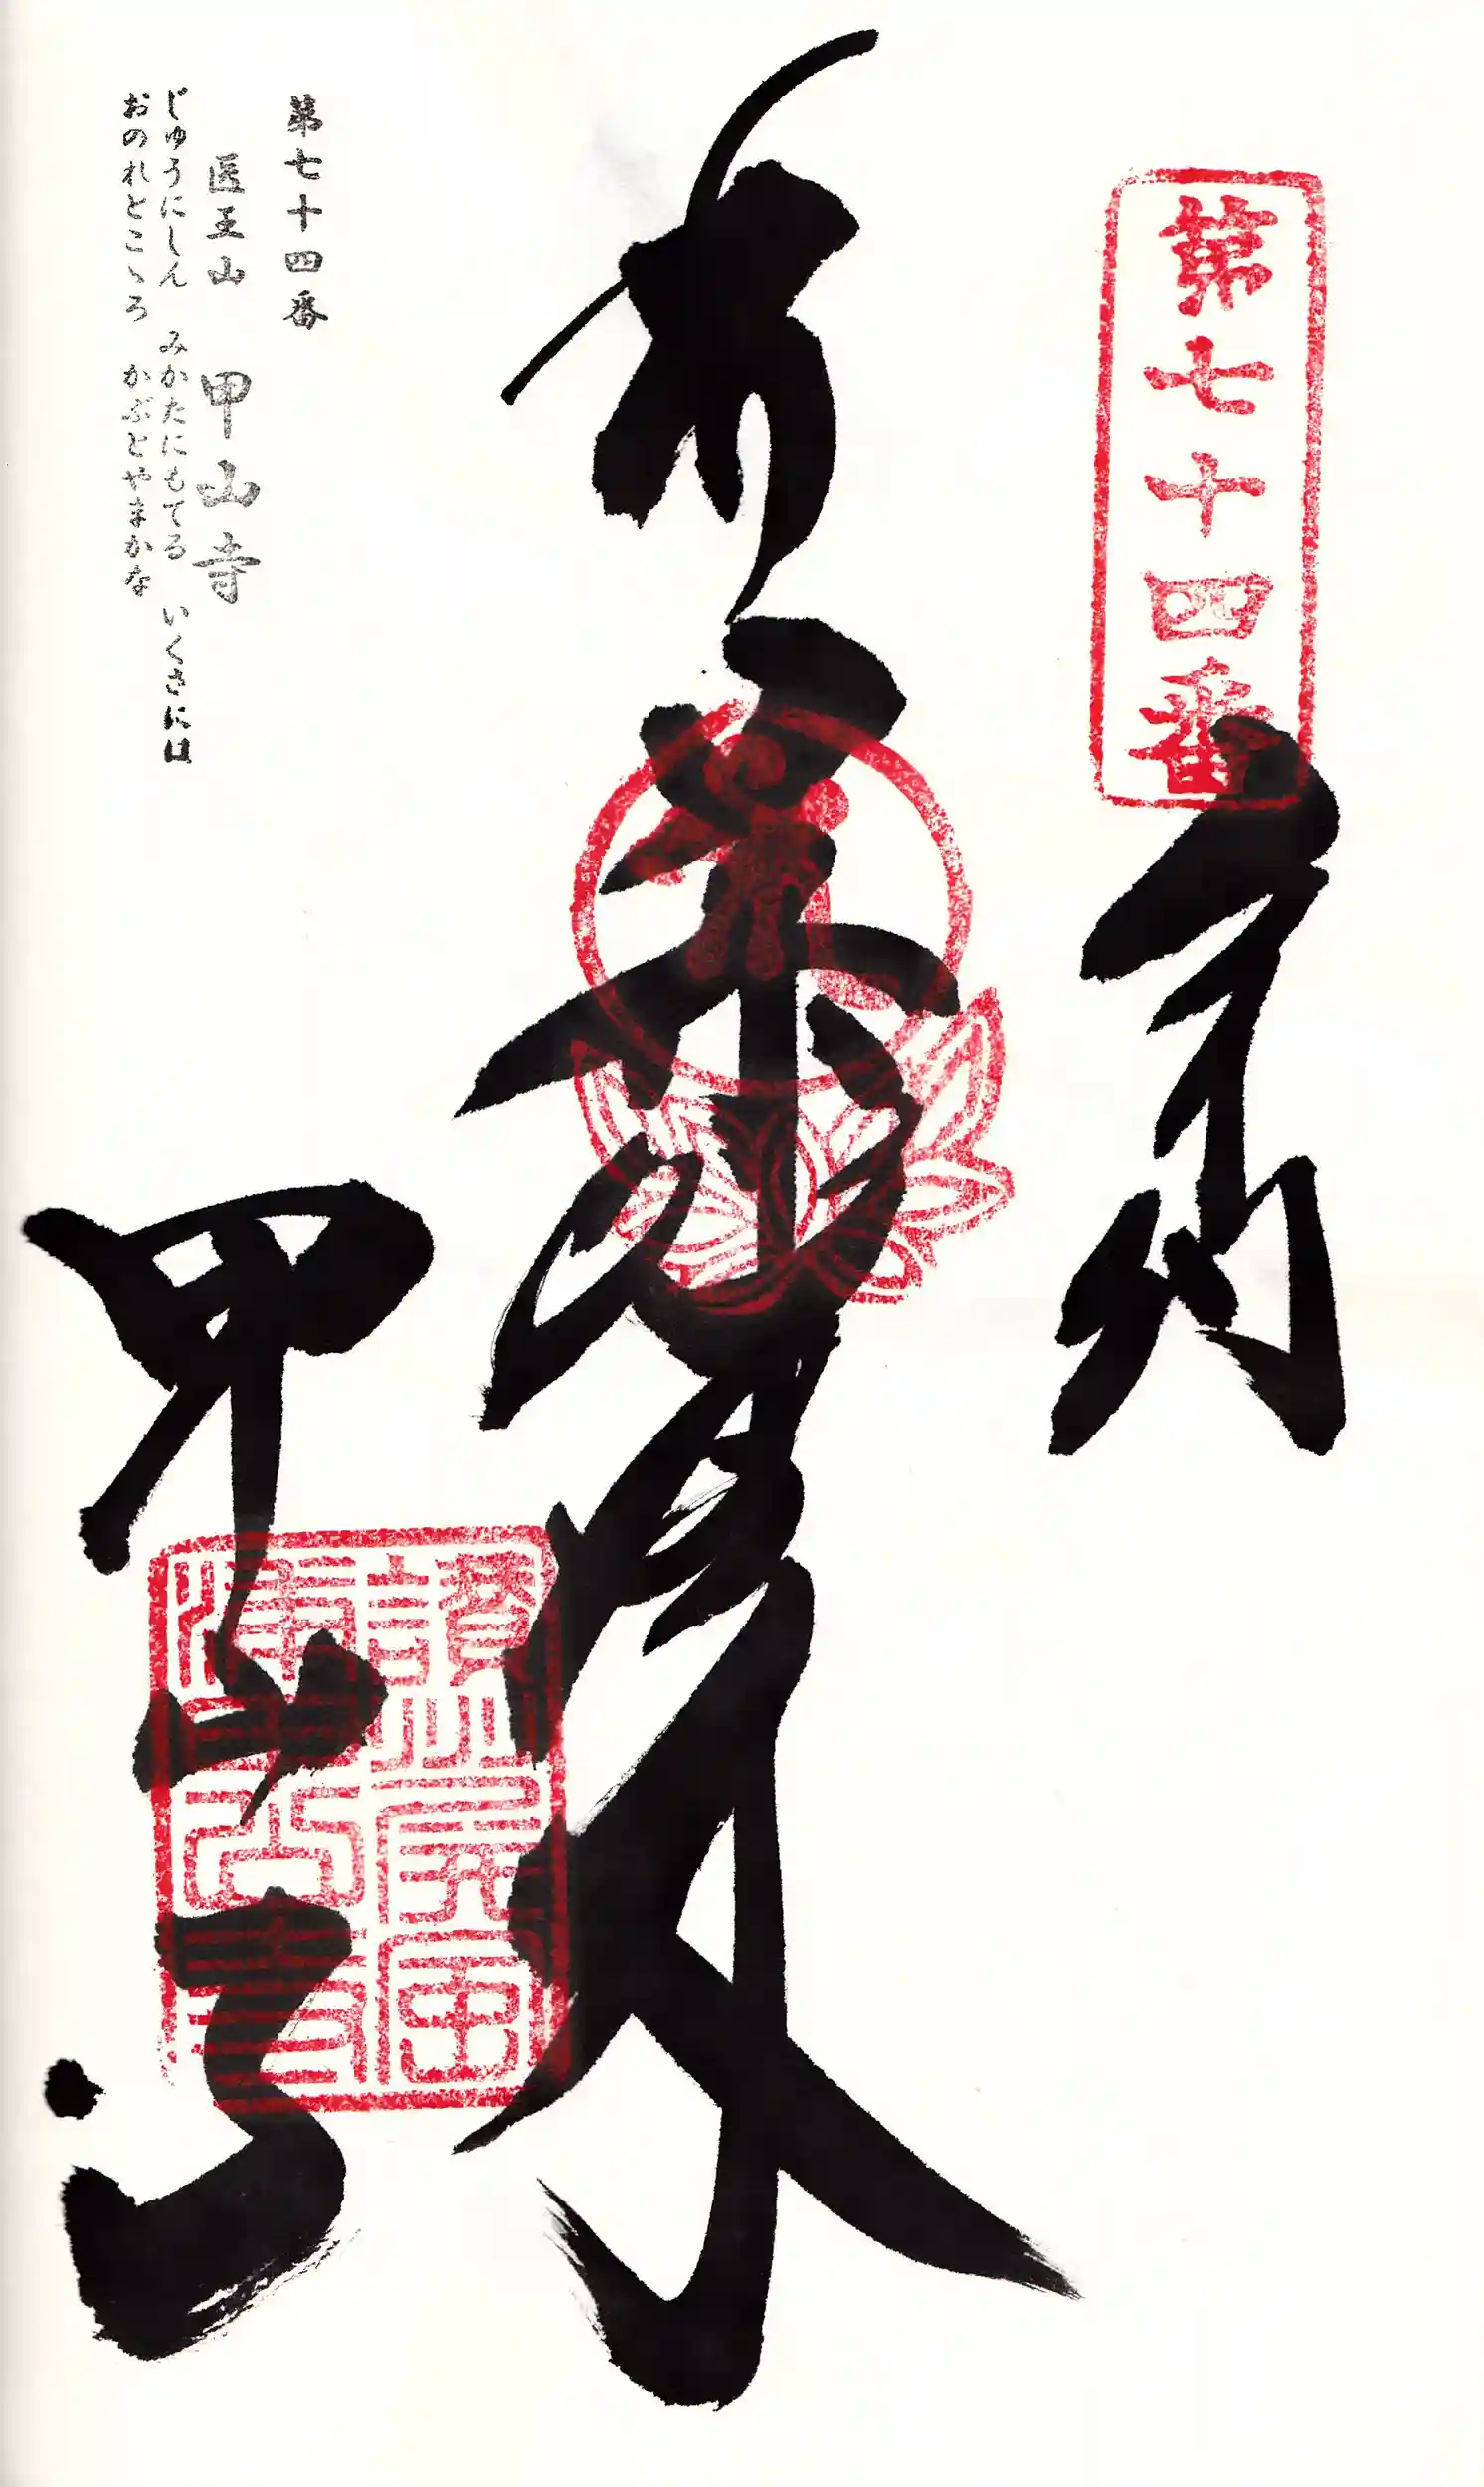 第七十四番
奉納
薬師如来
甲山寺
第七十四番
医王山 甲山寺
じゆうにしん みかたにもてる いくさには
おのれとこゝろ かぶとやまかな